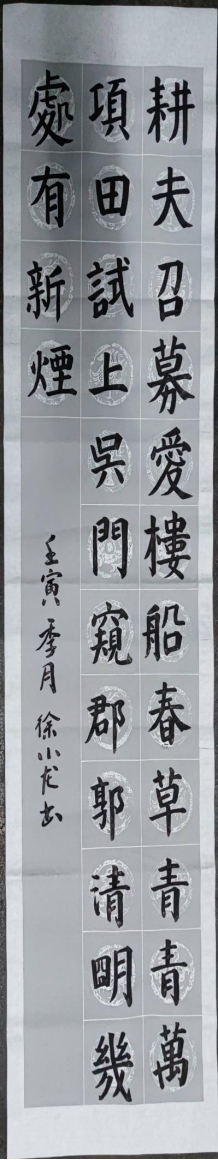 耕夫召募愛樓船春草青青萬
項田試上吳門窺郡郭清明幾
處有新煙
壬寅季月徐小龙书